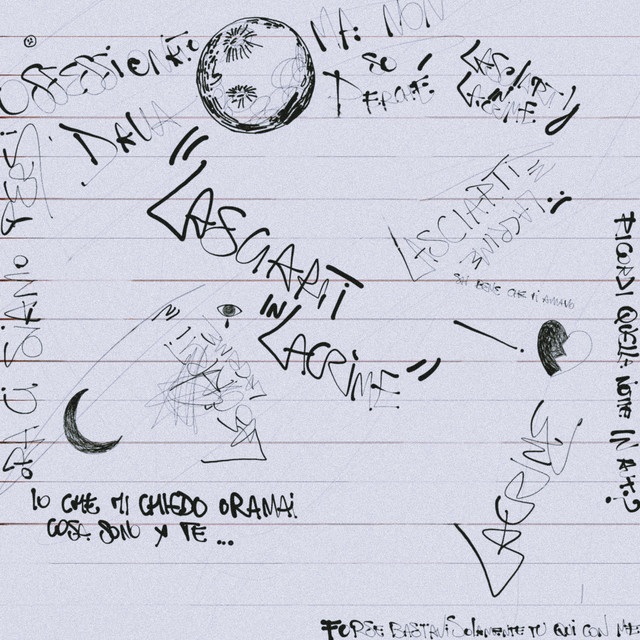 OSSESSIONATO
DALLA
MA NON
SO
PERCHÉ
LASCIARTI
IN LACRIME
"LASCIARTI
IN
LACRIME"
LASCIARTI IN
LACRIME
SAI BENE CHE TI AMAVO
RICORDI QUELLA NOTTE IN
ORA CI SIAMO PERSI
IO CHE MI CHIEDO ORAMAI
COSA SONO X TE ...
LACRIME
FORSE BASTAVI SOLAMENTE TU QUI CON ME